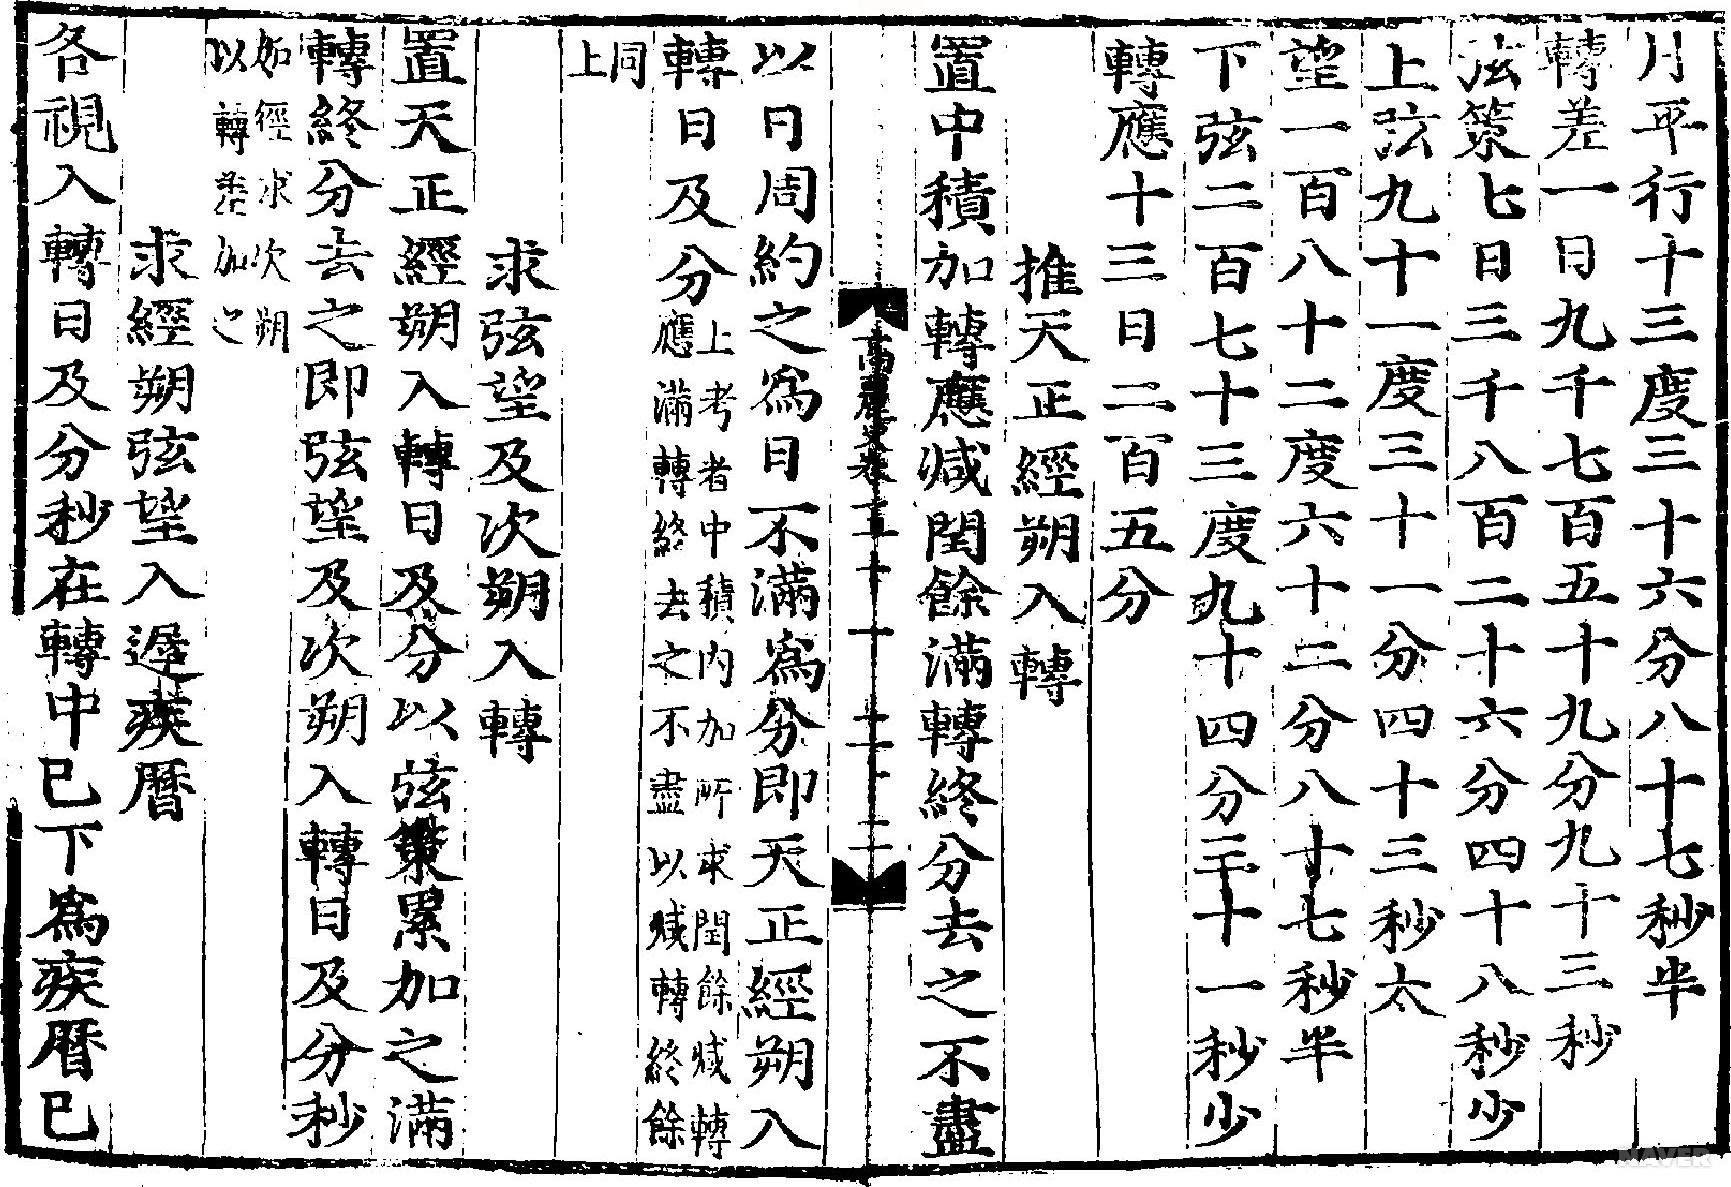 月平行十三度三十六分八十七秒半
轉差一日九千七百五十九分九十三秒
弦策七日三千八百二十六分四十八秒少
上弦九十一度三十一分四十三秒太
望一百八十二度六十二分八十七秒半
下弦二百七十三度九十四分三十一秒少
轉應十三日二百五分
推天正經朔入轉
置中積加轉應减閏餘滿轉終分去之不盡
高麗史卷五十
十二
以日周約之爲日不滿爲分即天正經朔入
轉日及分
上考者中積內加所求閏餘减轉
應滿轉終去之不盡以减轉終餘
同
上
求弦望及次朔入轉
置天正經朔入轉日及分以弦策累加之滿
轉終分去之即弦望及次朔入轉日及分秒
如徑求次朔
以轉差加之
求經朔弦望入遲疾曆
各視入轉日及分秒在轉中已下爲疾曆已